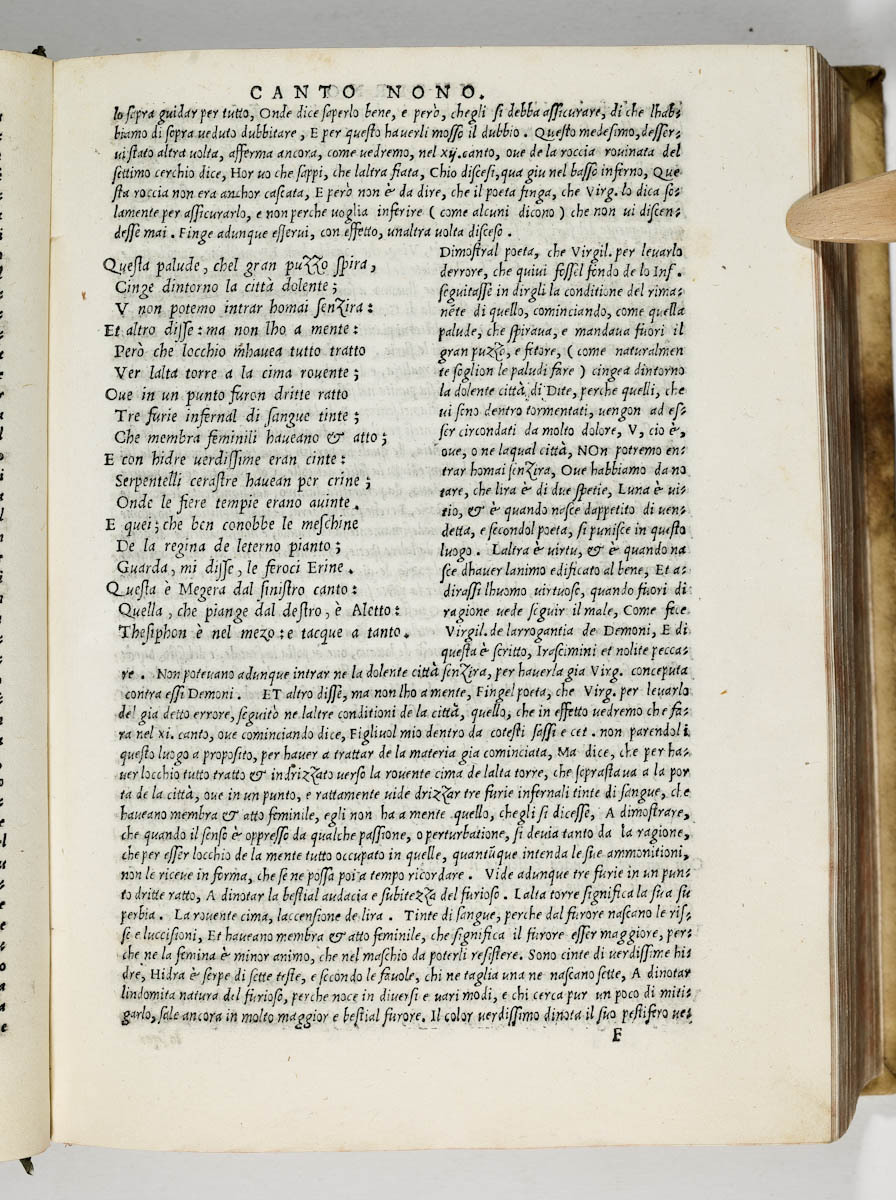 CANTO NONO.
lo sopra guidar per tutto, Onde dice saperlo bene, e però, chegli si debba assicurare, di che lhab-
biamo di sopra veduto dubbitare, E per questo haverli mosso il dubbio. Questo medesimo, desser-
ui stato altra uolta, afferma ancora, come uedremo, nel xij. canto, oue de la roccia rouinata del
settimo cerchio dice, Hor uo che sappi, che laltra fiata, Chio discesi, qua giu nel basso inferno, Que
sta roccia non era anchor cascata, E però non è da dire, che il poeta finga, che Virg. lo dica so-
lamente per assicurarlo, e non perche uoglia inferire ( come alcuni dicono ) che non ui discen-
desse mai. Finge adunque esserui, con effetto, unaltra uolta disceso.
Questa palude, chel gran puzzo spira,
Cinge dintorno la città dolente;
V non potemo intrar homai senzira:
Et altro disse: ma non lho a mente:
Però che locchio m̃hauea tutto tratto
Ver lalta torre a la cima rouente;
Oue in un punto furon dritte ratto
Tre furie infernal di sangue tinte;
Che membra feminili haueano & atto;
E con hidre uerdissime eran cinte:
Serpentelli cerastre hauean per crine;
Onde le fiere tempie erano auinte.
E quei; che ben conobbe le meschine
De la regina de leterno pianto;
Guarda, mi disse, le feroci Erine.
Questa è Megera dal sinistro canto:
Quella, che piange dal destro, è Aletto:
Thesiphon è nel mezo: e tacque a tanto.
Dimostral poeta, che Virgil. per leuarlo
derrore, che quiui fossel fondo de lo Inf.
seguitasse in dirgli la conditione del rima-
nẽte di quello, cominciando, come quella
palude, che spiraua, e mandaua fuori il
gran puzzo, e fetore, ( come naturalmen
te soglion le paludi fare ) cingea dintorno
la dolente città di Dite, perche quelli, che
ui sono dentro tormentati, uengon ad es-
ser circondati da molto dolore, V, cio è,
oue, o ne laqual città, NOn potremo en-
trar homai senzira, Oue habbiamo da no
tare, che lira è di due spetie, Luna è ui-
tio, & è quando nasce dappetito di uen-
detta, e secondol poeta, si punisce in questo
luogo. Laltra è uirtu, & è quando na
sce dhauer lanimo edificato al bene, Et a-
dirassi lhuomo uirtuoso, quando fuori di
ragione uede seguir il male, Come fece
Virgil. de larrogantia de Demoni, E di
questa è scritto, Irascimini et nolite pecca-
re. Non poteuano adunque intrar ne la dolente città senzira, per hauerla gia Virg. conceputa
contra essi Demoni. ET altro disse, ma non lho a mente, Fingel poeta, che Virg. per leuarlo
del gia detto errore, seguitò ne laltre conditioni de la città, quello, che in effetto uedremo che fa-
ra nel xi. canto, oue cominciando dice, Figliuol mio dentro da cotesti sassi e cet. non parendoli
questo luogo a proposito, per hauer a trattar de la materia gia cominciata, Ma dice, che per ha-
uer locchio tutto tratto & indrizzato uerso la rouente cima de lalta torre, che soprastaua a la por
ta de la città, oue in un punto, e rattamente uide drizzar tre furie infernali tinte di sangue, che
haueano membra & atto feminile, egli non ha a mente quello, chegli si dicesse, A dimostrare,
che quando il senso è oppresso da qualche passione, o perturbatione, si deuia tanto da la ragione,
che per esser locchio de la mente tutto occupato in quelle, quantũque intenda le sue ammonitioni,
non le riceue in forma, che se ne possa poi a tempo ricordare. Vide adunque tre furie in un pun-
to dritte ratto, A dinotar la bestial audacia e subitezza del furioso. Lalta torre significa la sua su
perbia. La rouente cima, laccensione de lira. Tinte di sangue, perche dal furore nascano le ris-
se e luccisioni, Et haueano membra & atto feminile, che significa il furore esser maggiore, per-
che ne la femina è minor animo, che nel maschio da poterli resistere. Sono cinte di uerdissime hi-
dre, Hidra è serpe di sette teste, e secondo le fauole, chi ne taglia una ne nascano sette, A dinotar
lindomita natura del furioso, perche noce in diuersi e uari modi, e chi cerca pur un poco di miti-
garlo, sale ancora in molto maggior e bestial furore. Il color uerdissimo dinota il suo pestifero ue-
F